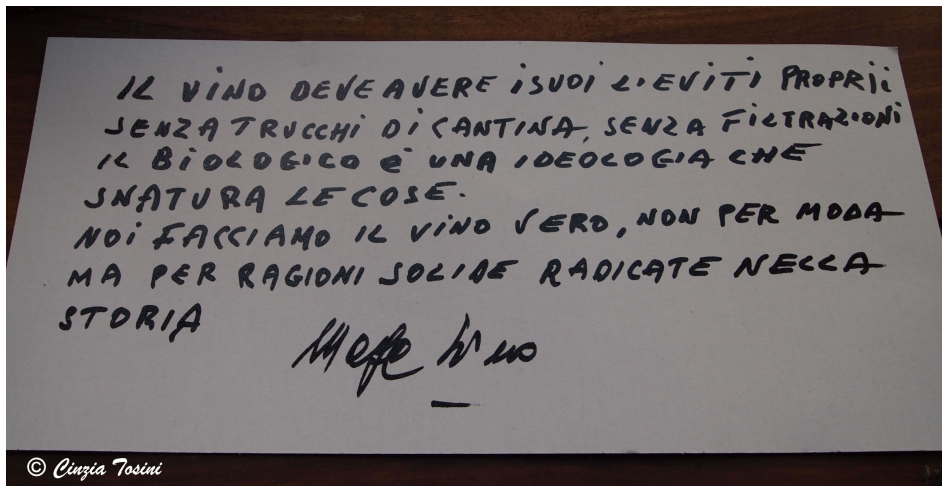 IL VINO DEVE AVERE I SUOI LIEVITI PROPRII
SENZA TRUCCHI DI CANTINA, SENZA FILTRAZIONI
IL BIOLOGICO È UNA IDEOLOGIA CHE
SNATURA LE COSE.
NOI FACCIAMO IL VINO VERO, NON PER MODA
MA PER RAGIONI SOLIDE RADICATE NELLA
STORIA
© Cinzia Tosini